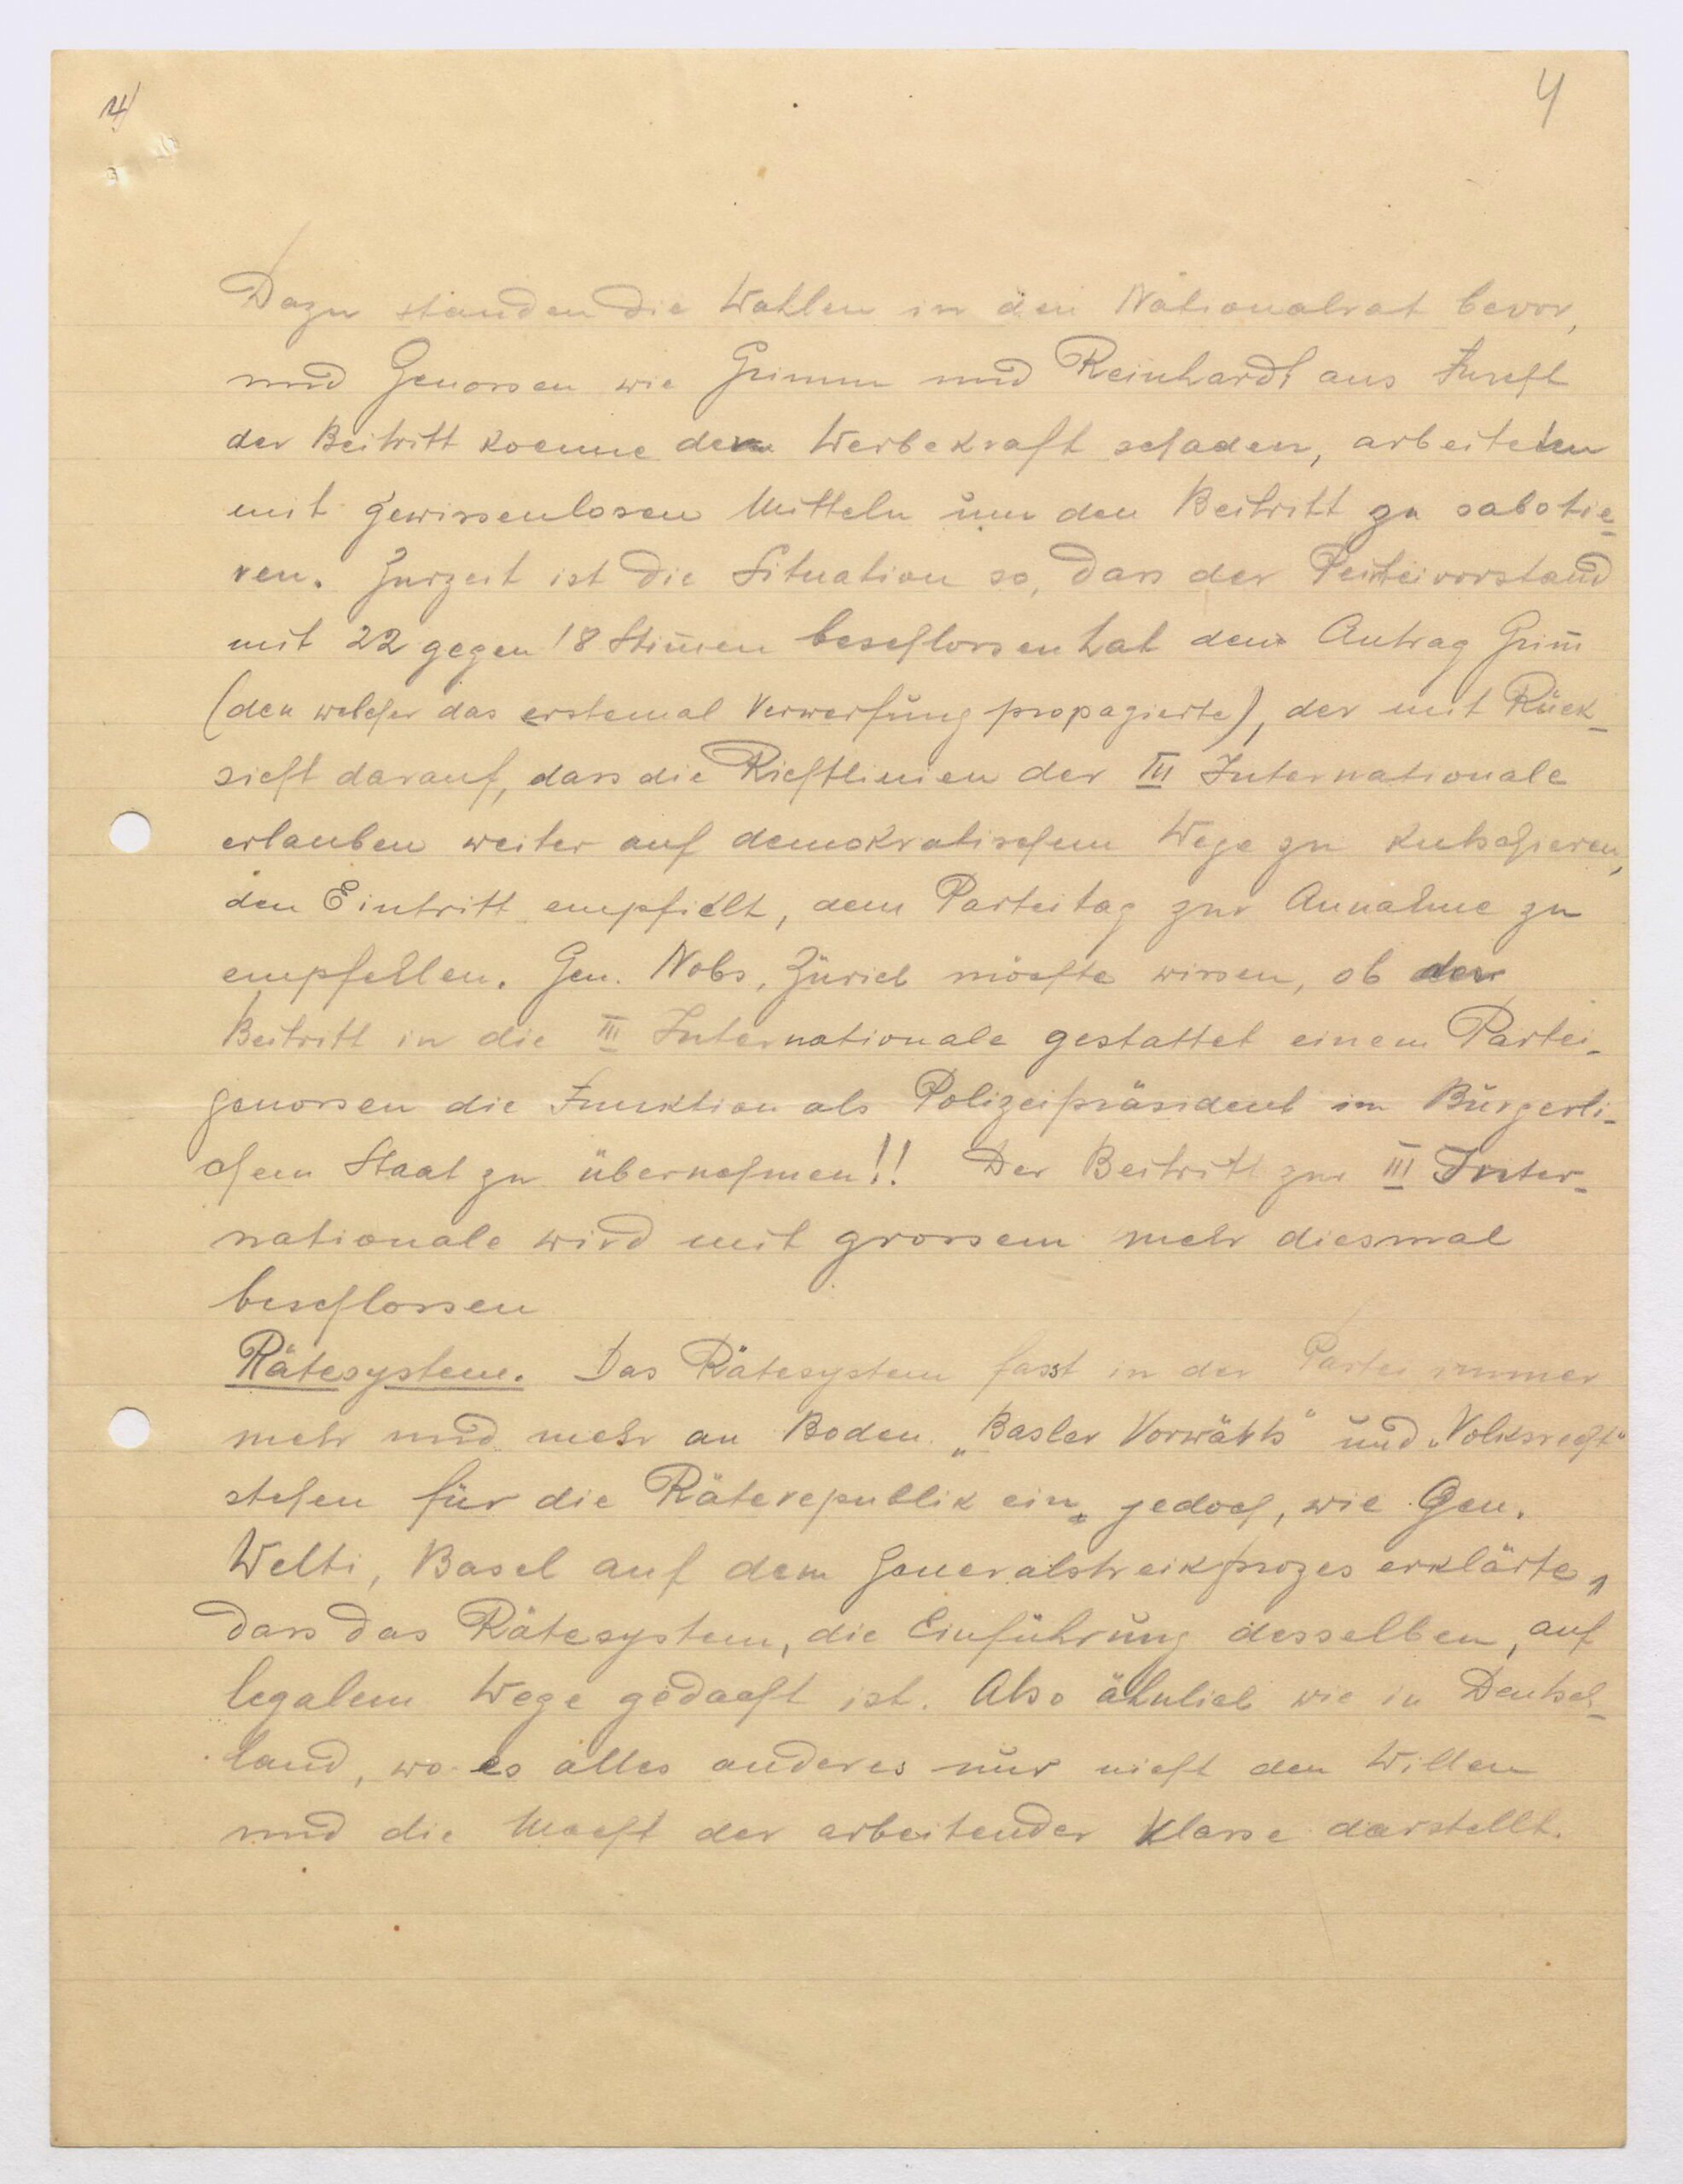 4)
4
Dazu standen die Wahlen in den Nationalrat bevor,
und Genossen wie Grimm und Reinhardt aus Furcht
der Beitritt koenne der Werbekraft schaden, arbeiteten
mit gewissenlosen Mitteln um den Beitritt zu sabotie-
ren. Zurzeit ist die Situation so, dass der Parteivorstand
mit 22 gegen 18 Stim̅en beschlossen hat den Antrag Grim̅
(den welcher das erstemal Verwerfung propagierte), der mit Rück-
sicht darauf, dass die Richtlinien der III Internationale
erlauben weiter auf demokratischem Wege zu kutschieren,
den Eintritt empfielt, dem Parteitag zur Annahme zu
empfehlen. Gen. Nobs, Zürich möchte wissen, ob der
Beitritt in die III Internationale gestattet einem Partei-
genossen die Funktion als Polizeipräsident im Bürgerli-
chem Staat zu übernehmen!! Der Beitritt zur III Inter-
nationale wird mit grossem mehr diesmal
beschlossen
Rätesystem. Das Rätesystem fasst in der Partei immer
mehr und mehr an Boden. „Basler Vorwärts" und „Volksrecht"
stehen für die Räterepublik ein, jedoch, wie Gen.
Welti, Basel auf dem Generalstreikprozes erklärte,
dass das Rätesystem, die Einführung desselben, auf
legalem Wege gedacht ist. Also ähnlich wie in Deutsch-
land, wo es alles anderes nur nicht den Willen
und die Macht der arbeitender Klasse darstellt.